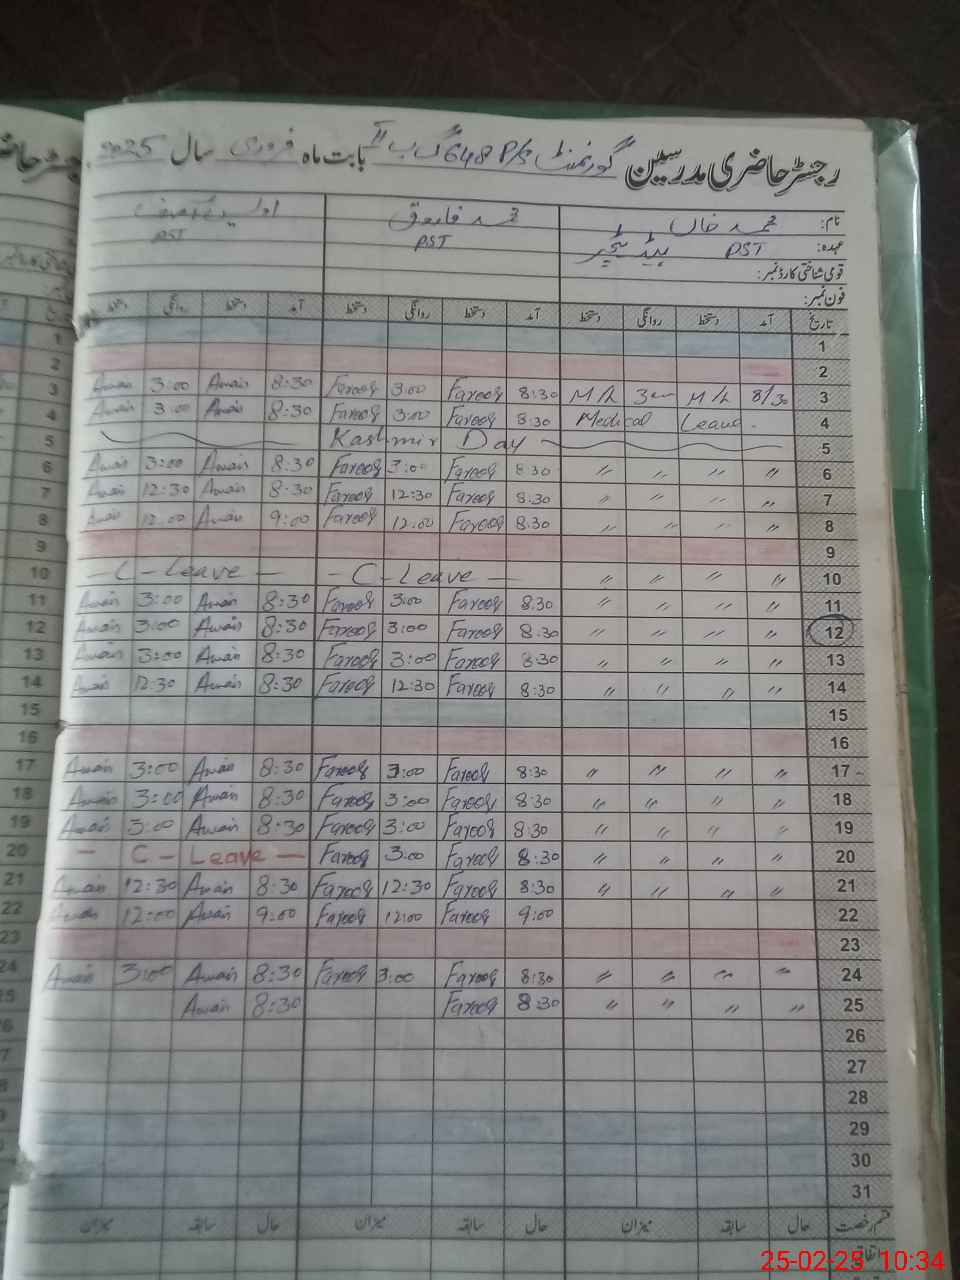 رجسٹر حاضری مدرسین گورنمنٹ P/S 648 گ ب II بابت ماہ فروری سال 2025
نام: محمد خاں محمد فاروق
عہدہ: PST ہیڈ ٹیچر PST PST
قومی شناختی کارڈ نمبر:
فون نمبر:
تاریخ آمد دستخط روانگی دستخط آمد دستخط روانگی دستخط آمد دستخط روانگی دستخط
1
2
Awais 3:00 Awais 8:30 Farooq 3:00 Farooq 8:30 M/L 3 M/L 8/30 3
Awais 3:00 Awais 8:30 Farooq 3:00 Farooq 8:30 Medical Leave. 4
Kashmir Day 5
Awais 3:00 Awais 8:30 Farooq 3:00 Farooq 8:30 〃 〃 〃 〃 6
Awais 12:30 Awais 8:30 Farooq 12:30 Farooq 8:30 〃 〃 〃 〃 7
Awais 12:00 Awais 9:00 Farooq 12:00 Farooq 8:30 〃 〃 〃 〃 8
9
— C - Leave — - C - Leave — 〃 〃 〃 〃 10
Awais 3:00 Awais 8:30 Farooq 3:00 Farooq 8:30 〃 〃 〃 〃 11
Awais 3:00 Awais 8:30 Farooq 3:00 Farooq 8:30 〃 〃 〃 〃 12
Awais 3:00 Awais 8:30 Farooq 3:00 Farooq 8:30 〃 〃 〃 〃 13
Awais 12:30 Awais 8:30 Farooq 12:30 Farooq 8:30 〃 〃 〃 〃 14
15
16
Awais 3:00 Awais 8:30 Farooq 3:00 Farooq 8:30 〃 〃 〃 〃 17
Awais 3:00 Awais 8:30 Farooq 3:00 Farooq 8:30 〃 〃 〃 〃 18
Awais 3:00 Awais 8:30 Farooq 3:00 Farooq 8:30 〃 〃 〃 〃 19
— C - Leave — Farooq 3:00 Farooq 8:30 〃 〃 〃 〃 20
Awais 12:30 Awais 8:30 Farooq 12:30 Farooq 8:30 〃 〃 〃 〃 21
Awais 12:00 Awais 9:00 Farooq 12:00 Farooq 9:00 22
23
Awais 3:00 Awais 8:30 Farooq 3:00 Farooq 8:30 〃 〃 〃 〃 24
Awais 8:30 Farooq 8:30 〃 〃 〃 〃 25
26
27
28
29
30
31
قسم رخصت حال سابقہ میزان حال سابقہ میزان حال سابقہ میزان
25-02-25 10:34